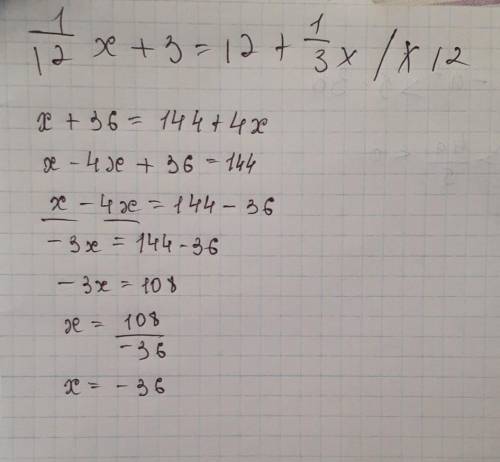 1/12 x + 3 = 12 + 1/3 x / x 12
x + 36 = 144 + 4x
x - 4x + 36 = 144
x - 4x = 144 - 36
- 3x = 144 - 36
- 3x = 108
x = 108/-36
x = - 36